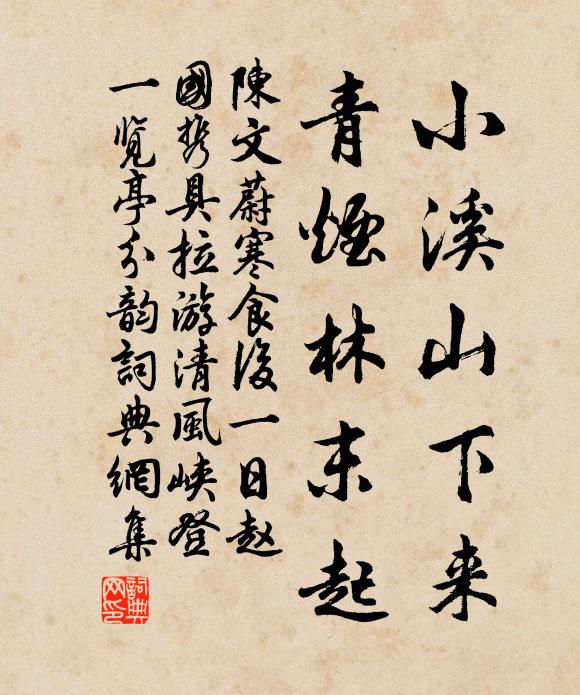 小溪山下来
青烟林末起
陳文蔚寒食後一日赵
國携具拉游清風峡登
一覧亭分韵詞典網集
詞典
网印